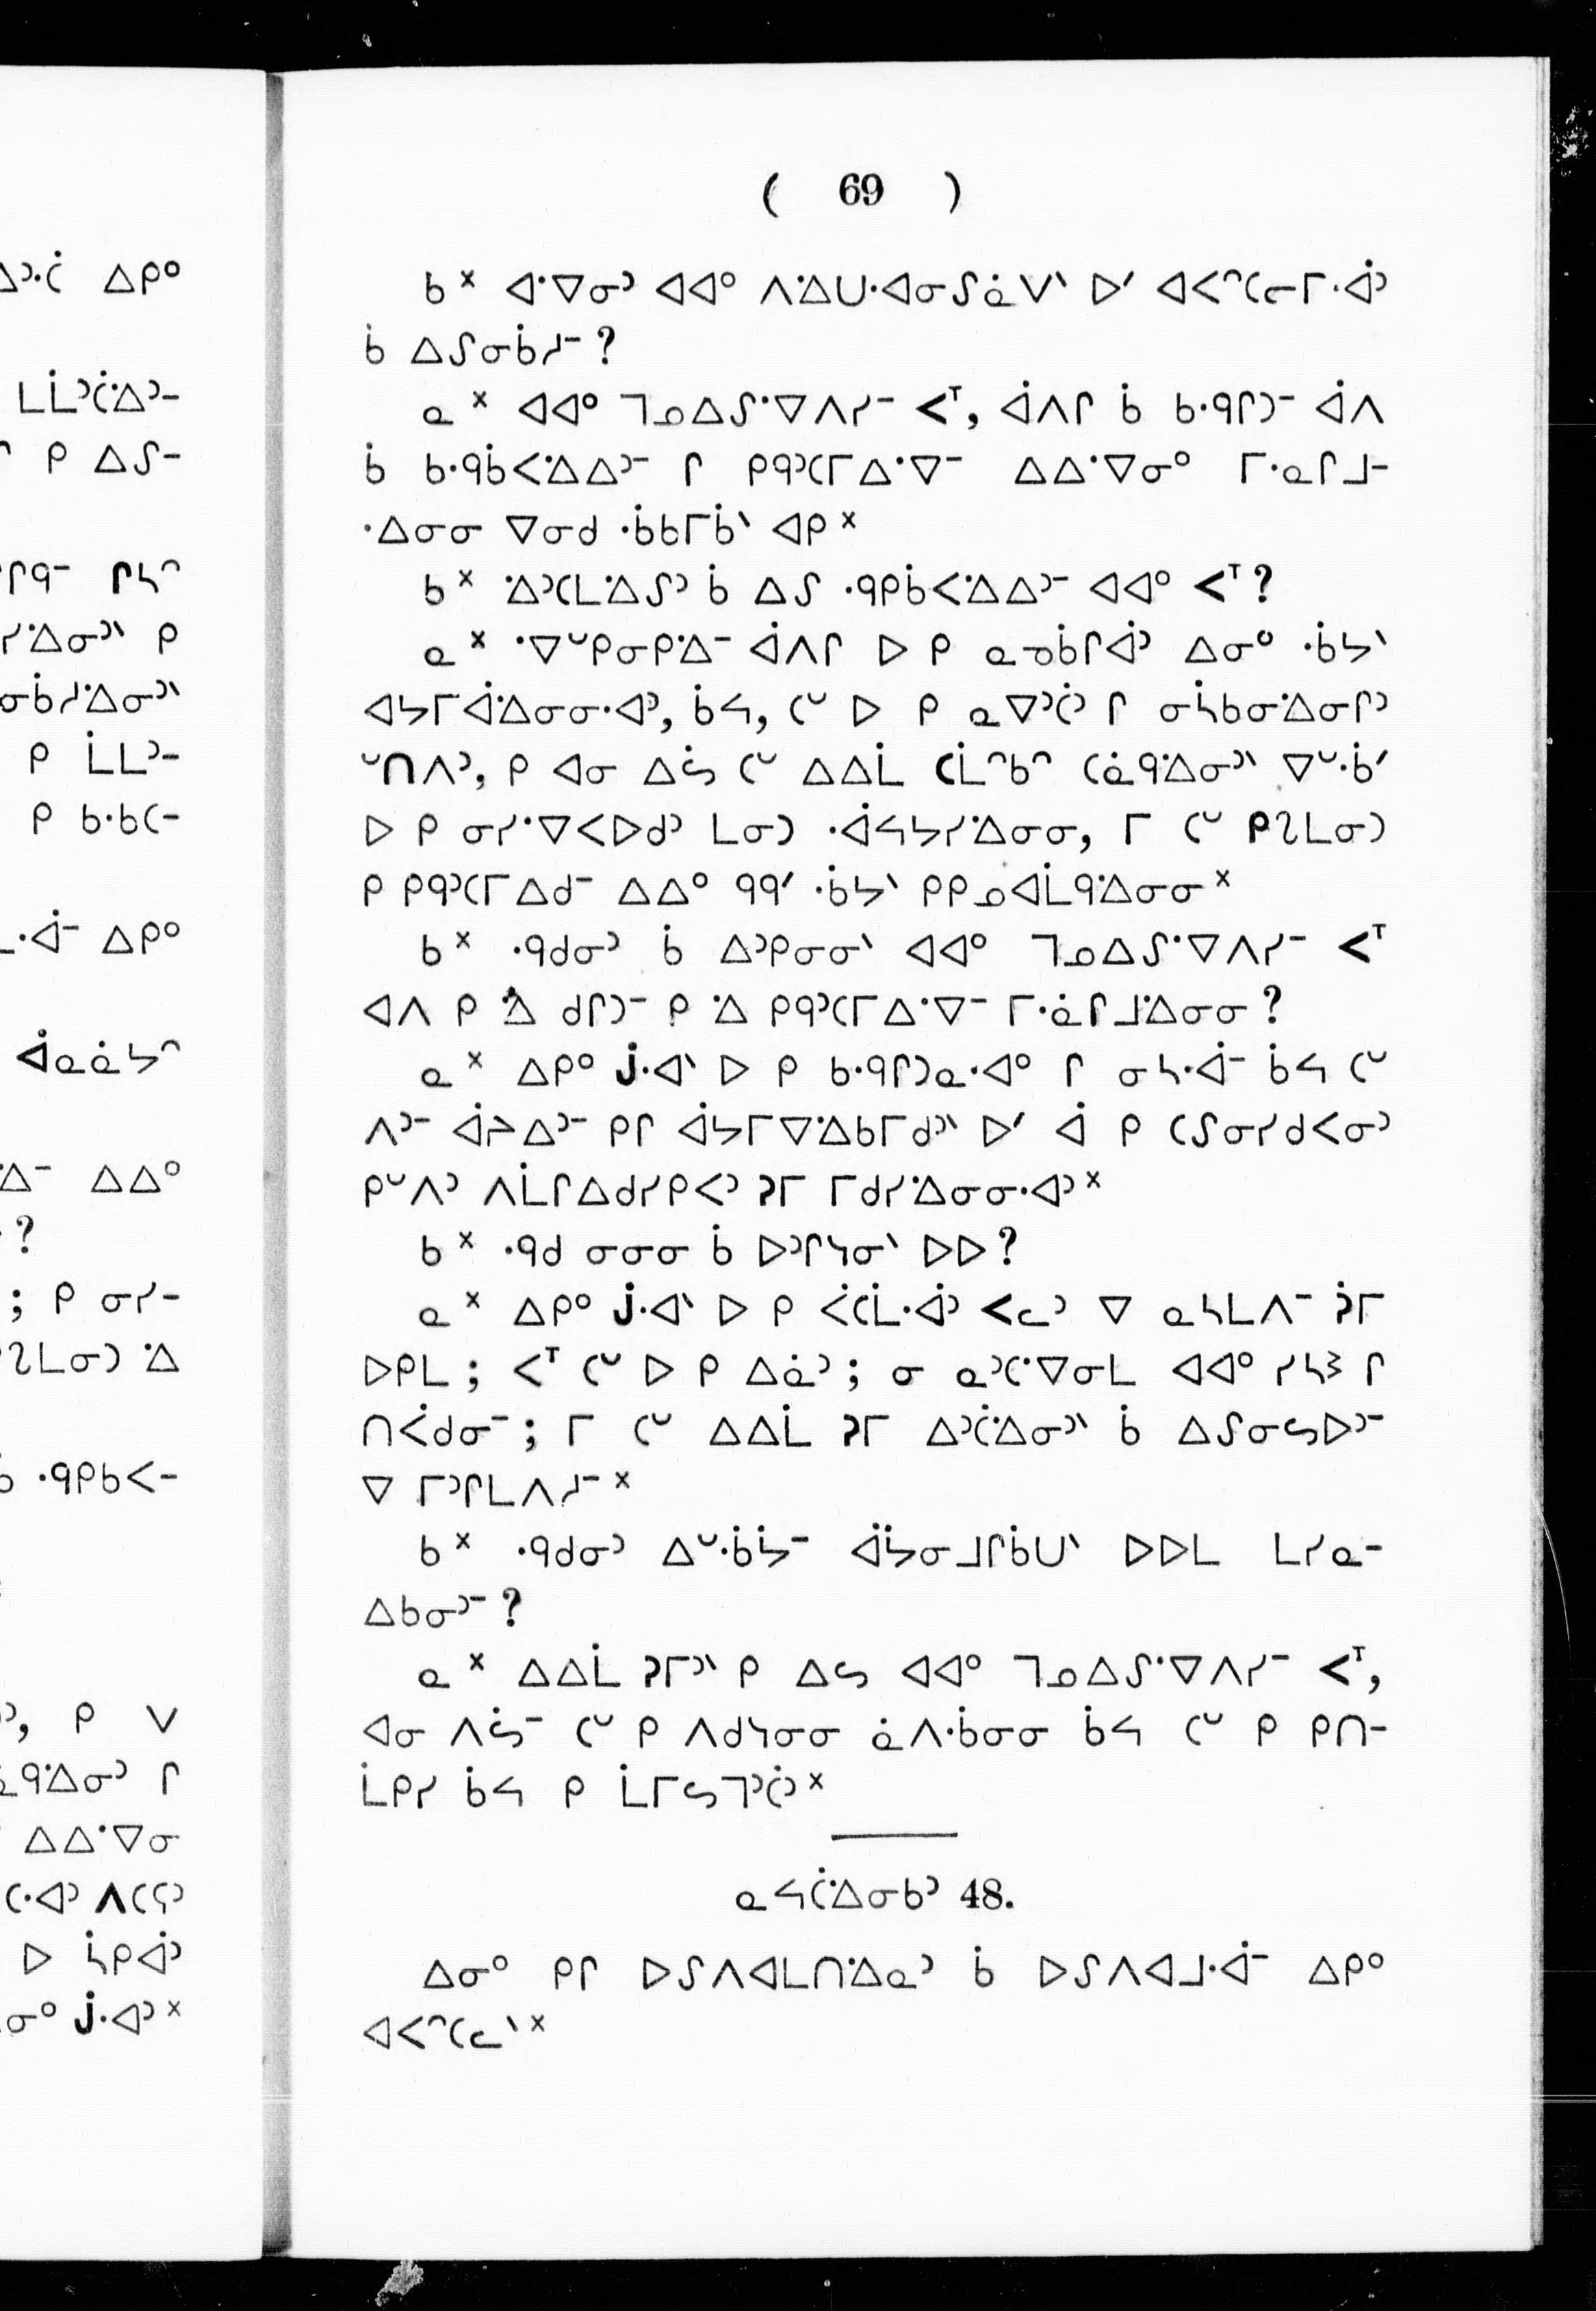 ( 69 )
ᑲ ᕽ ᐊᐧᐁᓂᐣ ᐊᐊᐤ ᐱᐧᐃᑌᐧᐊᓂᔑᓈᐯᐠ ᐅᐟ ᐊᐸᐢᑕᓕᒥᐧᐋᐣ
ᑳ ᐃᔑᓂᑳᓱᐨ ?
ᓇ ᕽ ᐊᐊᐤ ᒣᓄᐃᔑᐧᐁᐱᓯᐨ ᐸᐪ, ᐋᐱᒋ ᑳ ᑲᐧᑫᒋᑐᐨ ᐋᐱ
ᑳ ᑲᐧᑫᑳᐸᐧᐃᐃᐣᐨ ᒋ ᑭᑫᐣᑕᒥᐃᐧᐁᐨ ᐃᐃᐧᐁᓂᐤ ᒥᐧᓇᒋᒧ-
ᐧᐃᓂᓂ ᐁᓂᑯ ᐧᑳᑲᒥᑳᐠ ᐊᑭ ᕽ
ᑲ ᕽ ᐧᐃᐣᑕᒪᐧᐃᔑᐣ ᑳ ᐃᔑ ᐧᑫᑭᑳᐸᐧᐃᐃᐣᐨ ᐊᐊᐤ ᐸᐪ ?
ᓇ ᕽ ᐧᐁᐡᑭᓂᑭᐧᐃᐨ ᐋᐱᒋ ᐅ ᑭ ᓇᓀᑳᒋᐋᐣ ᐃᓂᐤ ᐧᑳᔭᐠ
ᐊᔭᒥᐋᐧᐃᓂᓂᐧᐊᐣ, ᑳᓴ, ᑕᐡ ᐅ ᑭ ᓇᐁᐣᑖᐣ ᒋ ᓂᓵᑲᓂᐧᐃᓂᒋᐣ
ᐡᑎᐱᐣ, ᑭ ᐊᓂ ᐃᔖ ᑕᐡ ᐃᐃᒫ ᑕᒫᐢᑲᐢ ᑕᓈᑫᐧᐃᓂᐣᐠ ᐁᐡᐧᑳᐟ
ᐅ ᑭ ᓂᓯᐧᐁᐸᐅᑯᐣ ᒪᓂᑐ ᐧᐋᓴᔭᓯᐧᐃᓂᓂ, ᒥ ᑕᐡ ᑭᒋᒪᓂᑐ
ᑭ ᑭᑫᐣᑕᒥᐃᑯᐨ ᐃᐃᐤ ᑫᑫᐟ ᐧᑳᔭᐠ ᑭᑭᓄᐊᒫᑫᐧᐃᓂᓂ ᕽ
ᑲ ᕽ ᐧᑫᑯᓂᐣ ᑳ ᐃᐣᑭᓂᓂᐠ ᐊᐊᐤ ᒣᓄᐃᔑᐧᐁᐱᓯᐨ ᐸᐪ
ᐊᐱ ᑭ ᐧᐃ ᑯᒋᑐᐨ ᑭ ᐧᐃ ᑭᑫᐣᑕᒥᐃᐧᐁᐨ ᒥᐧᓈᒋᒧᐧᐃᓂᓂ ?
ᓇ ᕽ ᐃᑭᐤ ᒎᐧᐊᐠ ᐅ ᑭ ᑲᐧᑫᒋᑐᓇᐧᐊᐤ ᒋ ᓂᓴᐧᐋᐨ ᑳᓴ ᑕᐡ
ᐱᐣᐨ ᐋᔨᐃᐣᐨ ᑭᒋ ᐋᔭᒥᐁᐧᐃᑲᒥᑯᐣᐠ ᐅᐟ ᐋ ᑭ ᑕᔑᓂᓯᑯᐸᓂᐣ
ᑭᐡᐱᐣ ᐱᒫᒋᐃᑯᓯᑭᐸᐣ ᕈᒥ ᒥᑯᓯᐧᐃᓂᓂᐧᐊᐣ ᕽ
ᑲ ᕽ ᐧᑫᑯ ᓂᓂᓂ ᑳ ᐅᐣᒋᓭᓂᐠ ᐅᐅ ?
ᓇ ᕽ ᐃᑭᐤ ᒎᐧᐊᐠ ᐅ ᑭ ᐹᑖᒫᐧᐋᐣ ᐸᓓᐣ ᐁ ᓇᓴᒪᐱᐨ ᕈᒥ
ᐅᑭᒪ ; ᐸᐪ ᑕᐡ ᐅ ᑭ ᐃᓈᐣ ; ᓂ ᓇᐣᑕᐧᐁᓂᒪ ᐊᐊᐤ ᓯᓴᕒ ᒋ
ᑎᐹᑯᓂᐨ ; ᒥ ᑕᐡ ᐃᐃᒫ ᕈᒥ ᐃᐣᑖᐧᐃᓂᐣᐠ ᑳ ᐃᔑᓂᔕᐅᐣᐨ
ᐁ ᒥᐣᒋᒪᐱᓱᐨ ᕽ
ᑲ ᕽ ᐧᑫᑯᓂᐣ ᐃᐡᐧᑳᔮᐨ ᐋᔮᓂᒧᒋᑳᑌᐠ ᐅᐅᒪ ᒪᓯᓇ-
ᐃᑲᓂᐣᐨ ?
ᓇ ᕽ ᐃᐃᒫ ᕈᒥᐣᐠ ᑭ ᐃᔕ ᐊᐊᐤ ᒣᓄᐃᔑᐧᐁᐱᓯᐨ ᐸᐪ,
ᐊᓂ ᐱᔖᐨ ᑕᐡ ᑭ ᐱᑯᓭᓂᓂ ᓈᐱᐧᑳᓂᓂ ᑳᓴ ᑕᐡ ᑭ ᑭᑎ-
ᒫᑭᓯ ᑳᓴ ᑭ ᒫᒥᔕᒣᐣᑖᐣ ᕽ
ᓇᓴᑖᐧᐃᓂᑲᐣ 48.
ᐃᓂᐤ ᑭᒋ ᐅᔑᐱᐊᒪᑎᐧᐃᓇᐣ ᑳ ᐅᔑᐱᐊᒧᐧᐋᐨ ᐃᑭᐤ
ᐊᐸᐢᑕᓓᐠ ᕽ